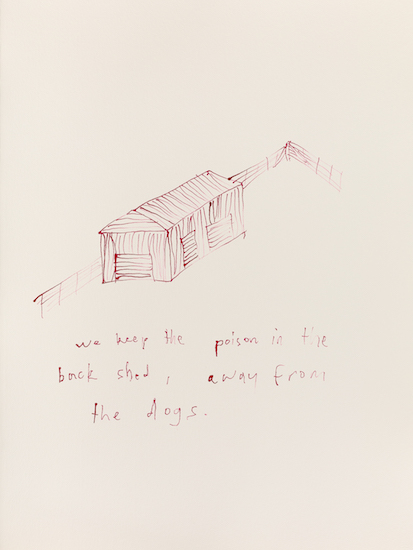 we keep the poison in the
back shed, away from
the dogs.